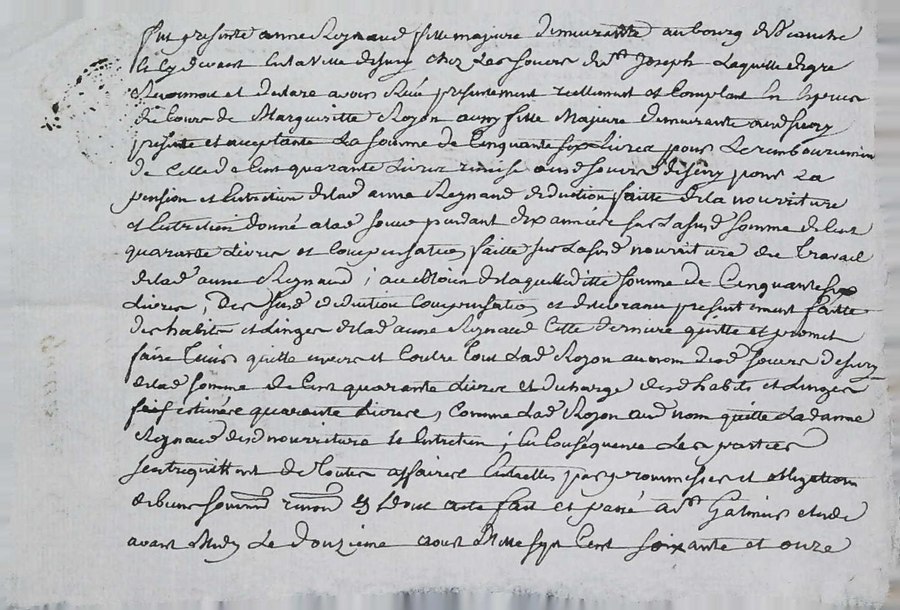 fut presente anne Reynaud fille majeure demeurante au bourg de
et cy devant en la ville de Sury chez Les Sœurs de St Joseph Laquelle de gre
a Reconnu et declare avoir Reçu presentement reellement et Comptant en especes
de Cours de Margueritte Royon aussy fille Majeure demeurante aud Sury
presente et acceptante La somme de Cinquante six Livres pour Le remboursement
de Celle de Cent quarante Livres remise aux d Sœurs de Sury pour La
pension et Entretien de lad anne Reynaud deduction faitte de la nourriture
et Entretien donné a lad pendant dix années sur La susd somme de Cent
quarante Livres et Compensation faitte sur La susd nourriture du Travail
de lad anne Reynaud ; au moien de laquelle ditte somme de Cinquante six
Livres, des susd deduction Compensation et delivrance presentement faitte
des habits et Linges de lad anne Reynaud Cette derniere quitte et promet
faire Tenir quitte envers et Contre Tous Lad Royon au nom des d Sœurs de Sury
de lad somme de Cent quarante Livres et decharge des d habits et Linges
estimés quarante Livres, Comme Lad Royon aud nom quitte Lad anne
Reynaud des d nourriture et Entretien ; En Consequence Les parties
s'entrequittent de Toutes affaires Entrelles par promesses et obligations
et Dont acte fait et passé a St Galmier etude
avant Midy Le Douzieme aoust Mille sept Cent soixante et onze